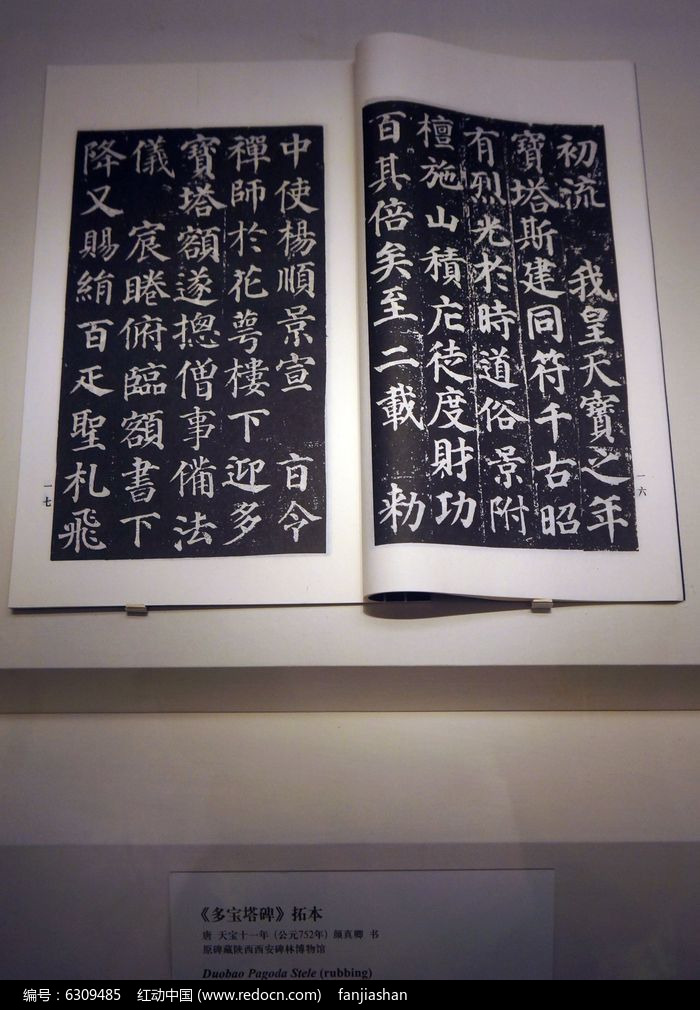 初流 我皇天寶之年
寶塔斯建同符千古昭
有烈光於時道俗景附
檀施山積庀徒度財功
百其倍矣至二載 勑
一六
中使楊順景宣 旨令
禪師於花萼樓下迎多
寶塔額遂摠僧事備法
儀 宸睠俯臨額書下
降又賜絹百疋聖札飛
一七
《多宝塔碑》拓本
唐 天宝十一年（公元752年）颜真卿 书
原碑藏陕西西安碑林博物馆
Duobao Pagoda Stele (rubbing)
编号：6309485 红动中国 (www.redocn.com) fanjiashan